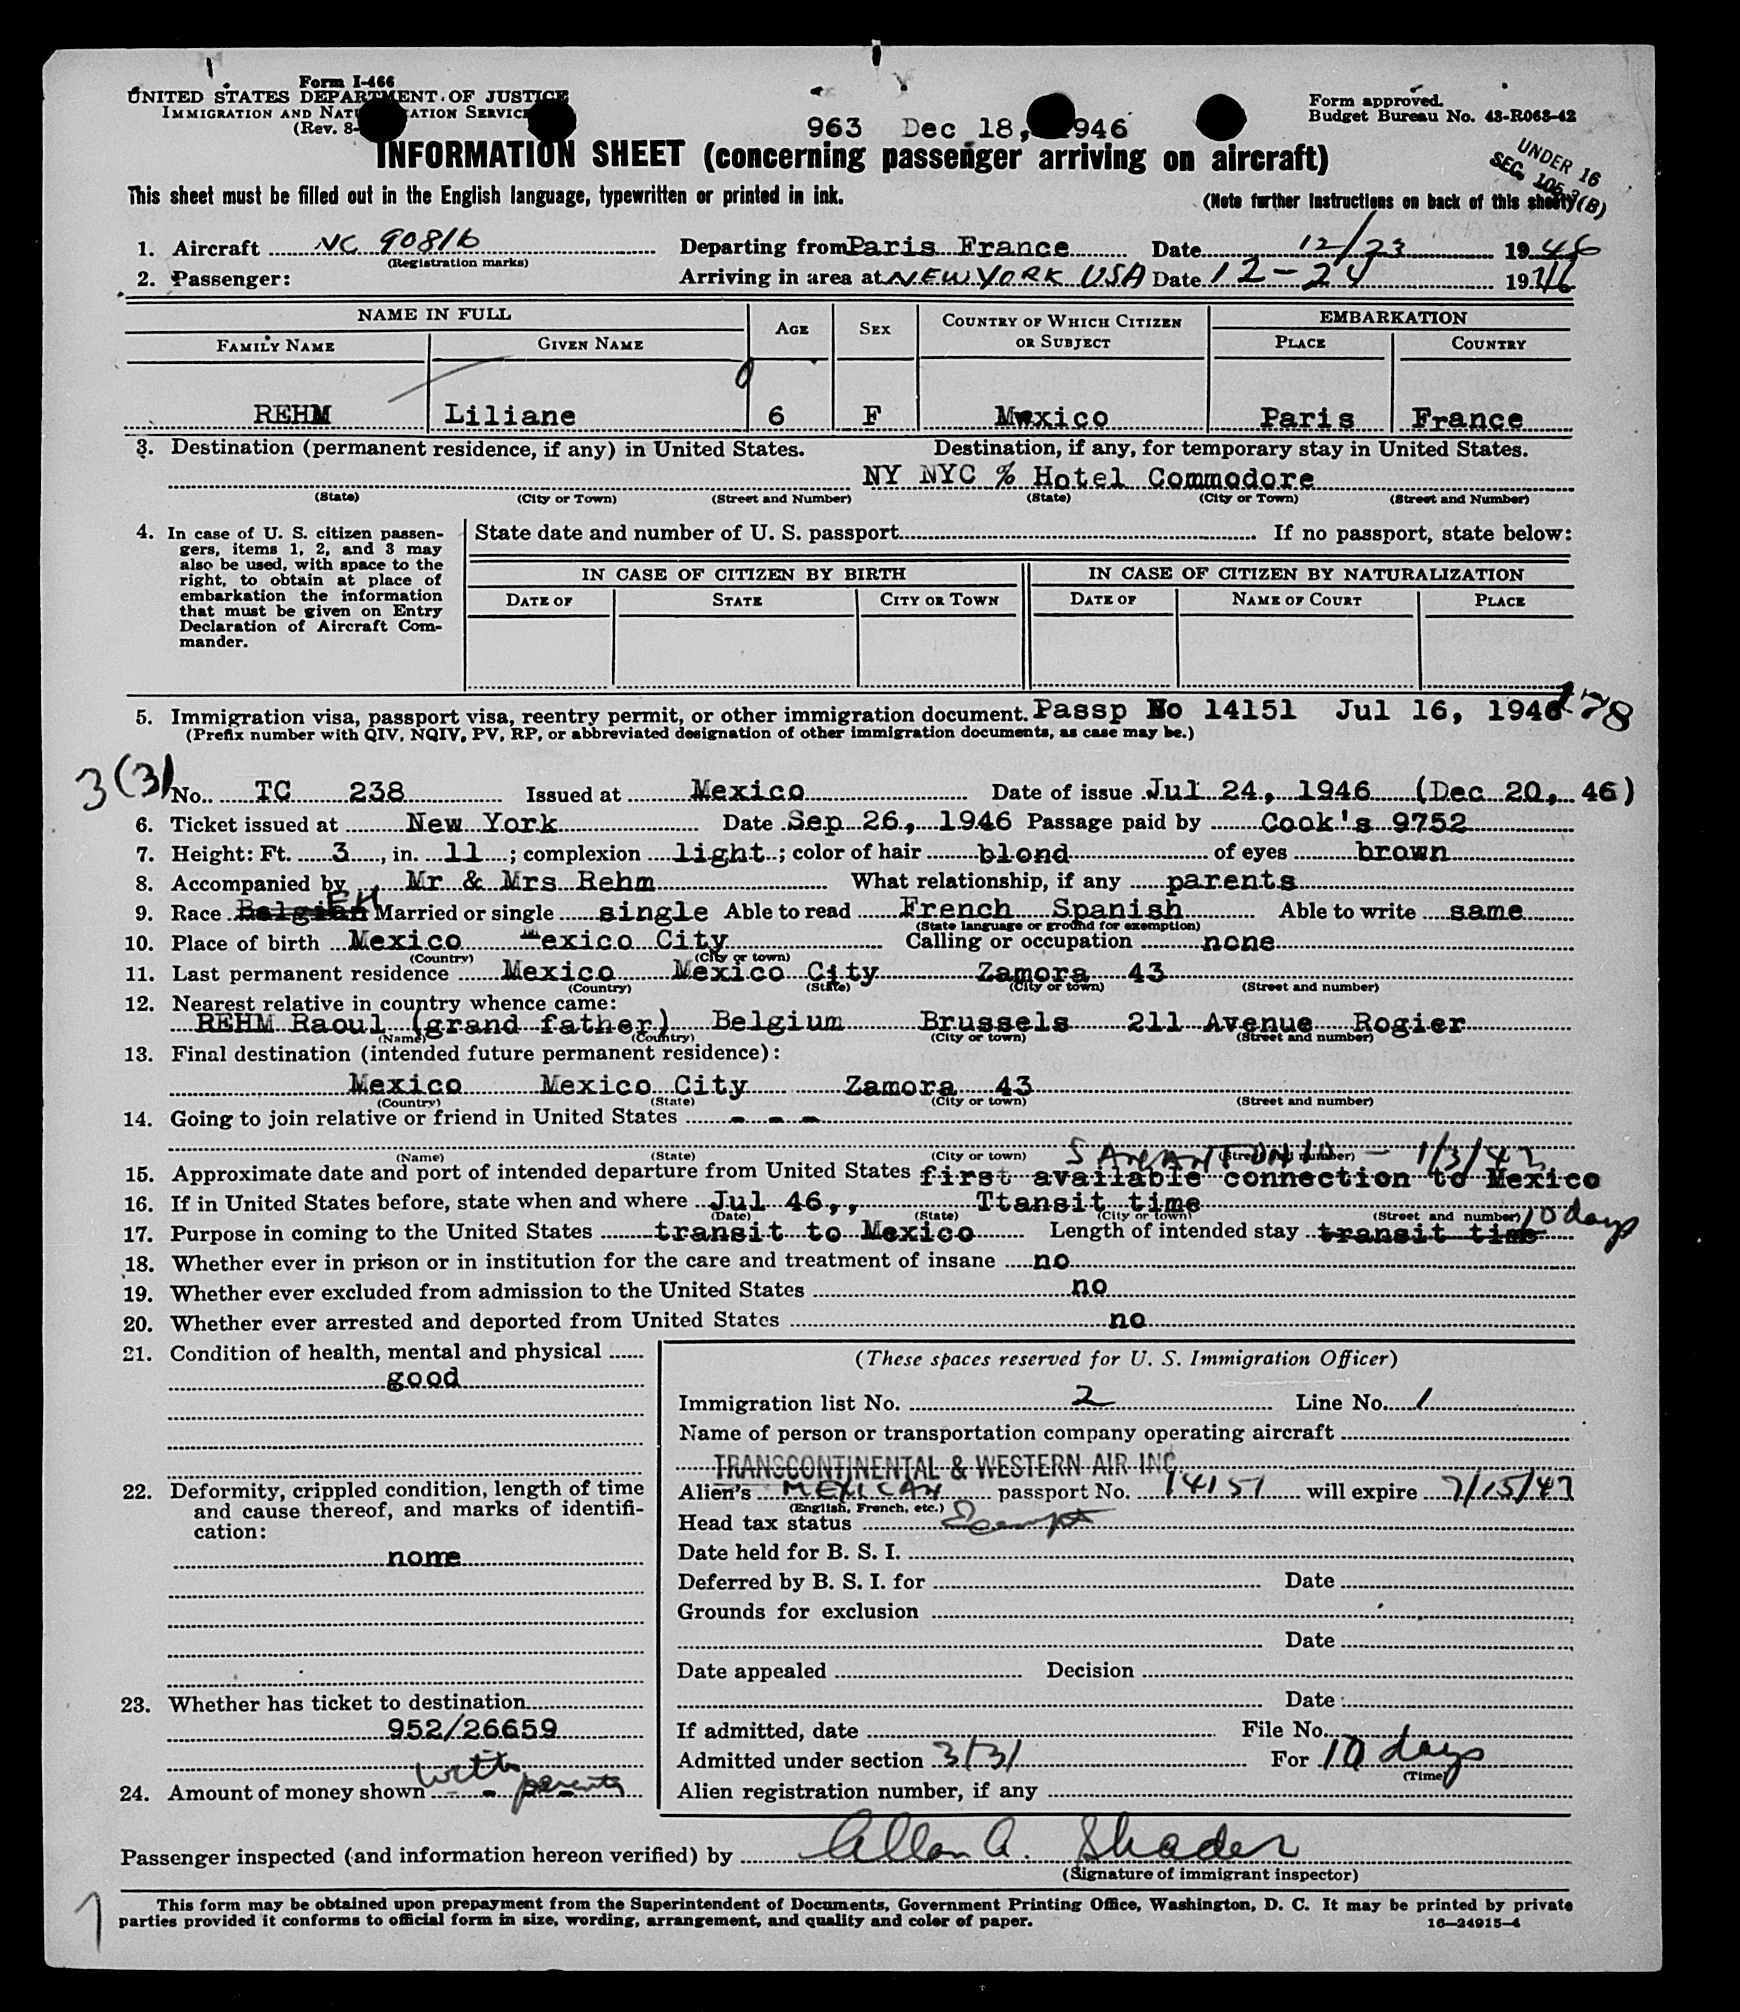 Form I-466
UNITED STATES DEPARTMENT OF JUSTICE
IMMIGRATION AND NAT ATION SERVIC
(Rev. 8-
Form approved.
Budget Bureau No. 43-R063-42
963 Dec 18, 1946
UNDER 16
SEC. 105.3(B)
INFORMATION SHEET (concerning passenger arriving on aircraft)
This sheet must be filled out in the English language, typewritten or printed in ink. (Note further instructions on back of this sheet)
1. Aircraft NC 90816 Departing from Paris France Date 12/23 1946
(Registration marks)
2. Passenger: Arriving in area at NEW YORK USA Date 12-24 1946
NAME IN FULL AGE SEX COUNTRY OF WHICH CITIZEN OR SUBJECT EMBARKATION
FAMILY NAME GIVEN NAME PLACE COUNTRY
REHM Liliane 6 F Mwxico Paris France
3. Destination (permanent residence, if any) in United States. Destination, if any, for temporary stay in United States.
NY NYC % Hotel Commodore
(State) (City or Town) (Street and Number) (State) (City or Town) (Street and Number)
4. In case of U. S. citizen passen-
gers, items 1, 2, and 3 may
also be used, with space to the
right, to obtain at place of
embarkation the information
that must be given on Entry
Declaration of Aircraft Com-
mander.
State date and number of U. S. passport If no passport, state below:
IN CASE OF CITIZEN BY BIRTH IN CASE OF CITIZEN BY NATURALIZATION
DATE OF STATE CITY OR TOWN DATE OF NAME OF COURT PLACE
5. Immigration visa, passport visa, reentry permit, or other immigration document. Passp No 14151 Jul 16, 1946 178
(Prefix number with QIV, NQIV, PV, RP, or abbreviated designation of other immigration documents, as case may be.)
3(3) No. TC 238 Issued at Mexico Date of issue Jul 24, 1946 (Dec 20, 46)
6. Ticket issued at New York Date Sep 26, 1946 Passage paid by Cook's 9752
7. Height: Ft. 3, in. 11; complexion light; color of hair blond of eyes brown
8. Accompanied by Mr & Mrs Rehm What relationship, if any parents
9. Race Belgian Married or single single Able to read French Spanish Able to write same
(State language or ground for exemption)
10. Place of birth Mexico Mexico City Calling or occupation none
(Country) (City or town)
11. Last permanent residence Mexico Mexico City Zamora 43
(Country) (State) (City or town) (Street and number)
12. Nearest relative in country whence came:
REHM Raoul (grand father) Belgium Brussels 211 Avenue Rogier
(Name) (Country) (City or town) (Street and number)
13. Final destination (intended future permanent residence):
Mexico Mexico City Zamora 43
(Country) (State) (City or town) (Street and number)
14. Going to join relative or friend in United States - - -
(Name) (State) (City or town) (Street and number)
SAN ANTONIO - 1/3/47
15. Approximate date and port of intended departure from United States first available connection to Mexico
16. If in United States before, state when and where Jul 46,, Ttansit time
(Date) (State) (City or town) (Street and number)
10 days
17. Purpose in coming to the United States transit to Mexico Length of intended stay transit time
18. Whether ever in prison or in institution for the care and treatment of insane no
19. Whether ever excluded from admission to the United States no
20. Whether ever arrested and deported from United States no
21. Condition of health, mental and physical
good
22. Deformity, crippled condition, length of time
and cause thereof, and marks of identifi-
cation:
none
23. Whether has ticket to destination
952/26659
24. Amount of money shown with parents
(These spaces reserved for U. S. Immigration Officer)
Immigration list No. 2 Line No. 1
Name of person or transportation company operating aircraft
TRANSCONTINENTAL & WESTERN AIR INC
Alien's MEXICAN passport No. 14151 will expire 7/15/47
(English, French, etc.)
Head tax status Exempt
Date held for B. S. I.
Deferred by B. S. I. for Date
Grounds for exclusion
Date
Date appealed Decision
Date
If admitted, date File No.
Admitted under section 3(3) For 10 days
(Time)
Alien registration number, if any
Passenger inspected (and information hereon verified) by Allan A. Shader
(Signature of immigrant inspector)
This form may be obtained upon prepayment from the Superintendent of Documents, Government Printing Office, Washington, D. C. It may be printed by private
parties provided it conforms to official form in size, wording, arrangement, and quality and color of paper. 16-24915-4